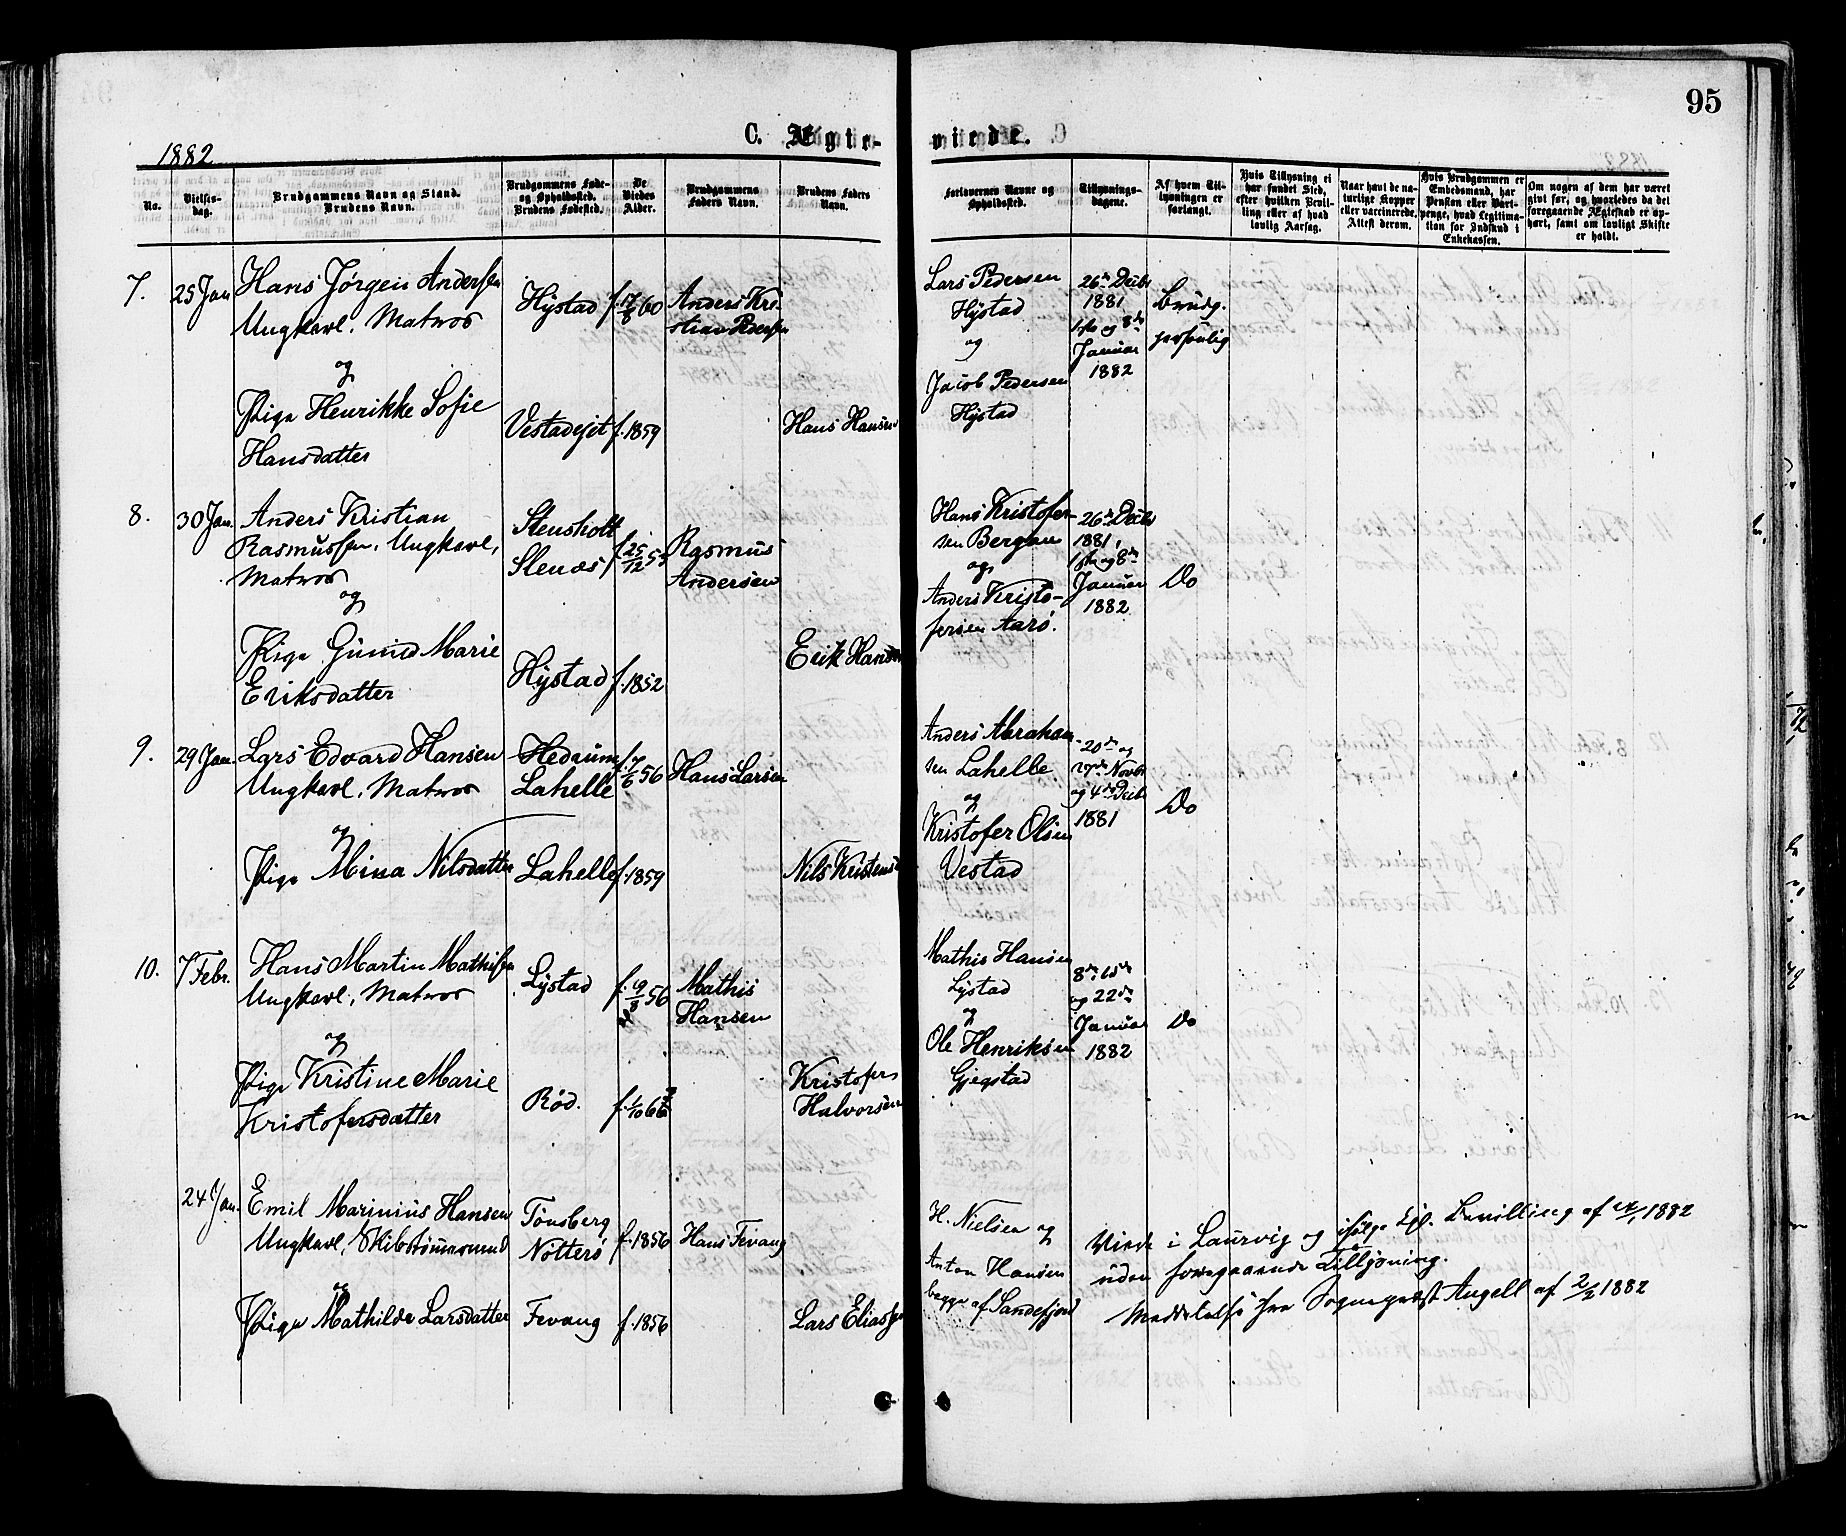 95
1882
C. Ægte-
viede.
No.
Vielses-
dag.
Brudgommens Navn og Stand.
Brudens Navn.
Brudgommens Føde-
og Opholdssted.
Brudens Fødested.
De
Viedes
Alder.
Brudgommens
Faders Navn.
Brudens Faders
Navn.
Forlovernes Navne og
Opholdssted.
Tillysnings-
dagene.
Af hvem Til-
lysningen er
forlangt.
Hvis Tillysning ei
har fundet Sted,
efter hvilken Bevil-
ling eller af hvad
lovlig Aarsag.
Naar havt de na-
turlige Kopper
eller vaccinerede.
Attest derom.
Hvis Brudgommen er
Embedsmand, har
Pension eller Vart-
penge, hvad Legitima-
tion for Indskud i
Enkekassen.
Om nogen af dem har været
gift før, og hvorledes da det
foregaaende Ægteskab er op-
hørt, samt om lovligt Skifte
er holdt.
7.
25 Jan
Hans Jørgen Andersen
Ungkarl, Matros
og
Pige Henrikke Sofie
Hansdatter
Hystad
f. 17/8 60
Anders Kri-
stian Pedersen
Vestadejet
f. 1859
Hans Hansen
Lars Pedersen
Hystad
og
Jacob Pedersen
Hystad
26de Decbr
1881
1ste og 8de
Januar
1882
Brudg.
personlig
8.
30 Jan.
Anders Kristian
Rasmussen, Ungkarl,
Matros
og
Pige Gunild Marie
Eriksdatter
Stensholt
f. 25/12 55
Rasmus
Andersen
Hystad
f. 1852
Erik Hansen
Hans Kristofer-
sen Bergan
og
Anders Kristo-
fersen Aarø.
26de Decbr
1881,
1ste og 8de
Januar
1882
Do
9.
29 Jan.
Lars Edvard Hansen
Ungkarl, Matros
og
Pige Mina Nilsdatter
Hedrum
Lahelle
f. 7/6 56
Hans Larsen
Lahelle
f. 1859
Nils Kristensen
Anders Abraham-
sen Lahelle
og
Kristofer Olsen
Vestad
20de og
27de Novbr
og 4de Decbr
1881
Do
10.
7 Febr.
Hans Martin Mathisen
Ungkarl, Matros
og
Pige Kristine Marie
Kristofersdatter
Lystad
f. 19/8 56
Mathis
Hansen
Rød.
f. 1/10
Kristofer
Halvorsen
Mathis Hansen
Lystad
og
Ole Henriksen
Gjegstad
8de, 15de
og 22de
Januar
1882
Do
24 Jan.
Emil Marinius Hansen
Ungkarl, Skibstømmermand
og
Pige Mathilde Larsdatter
Tønsberg
Nøtterø
f. 1856
Hans Fevang
Fevang
f. 1856
Lars Eliassen
H. Nielsen og
Anton Hansen
begge af Sandefjord
Viede i Laurvig og ifølge Kgl. Bevilling af 1882
uden foregaaende Tillysning.
Meddelelse fra Sognepræst Angell af 2/2 1882